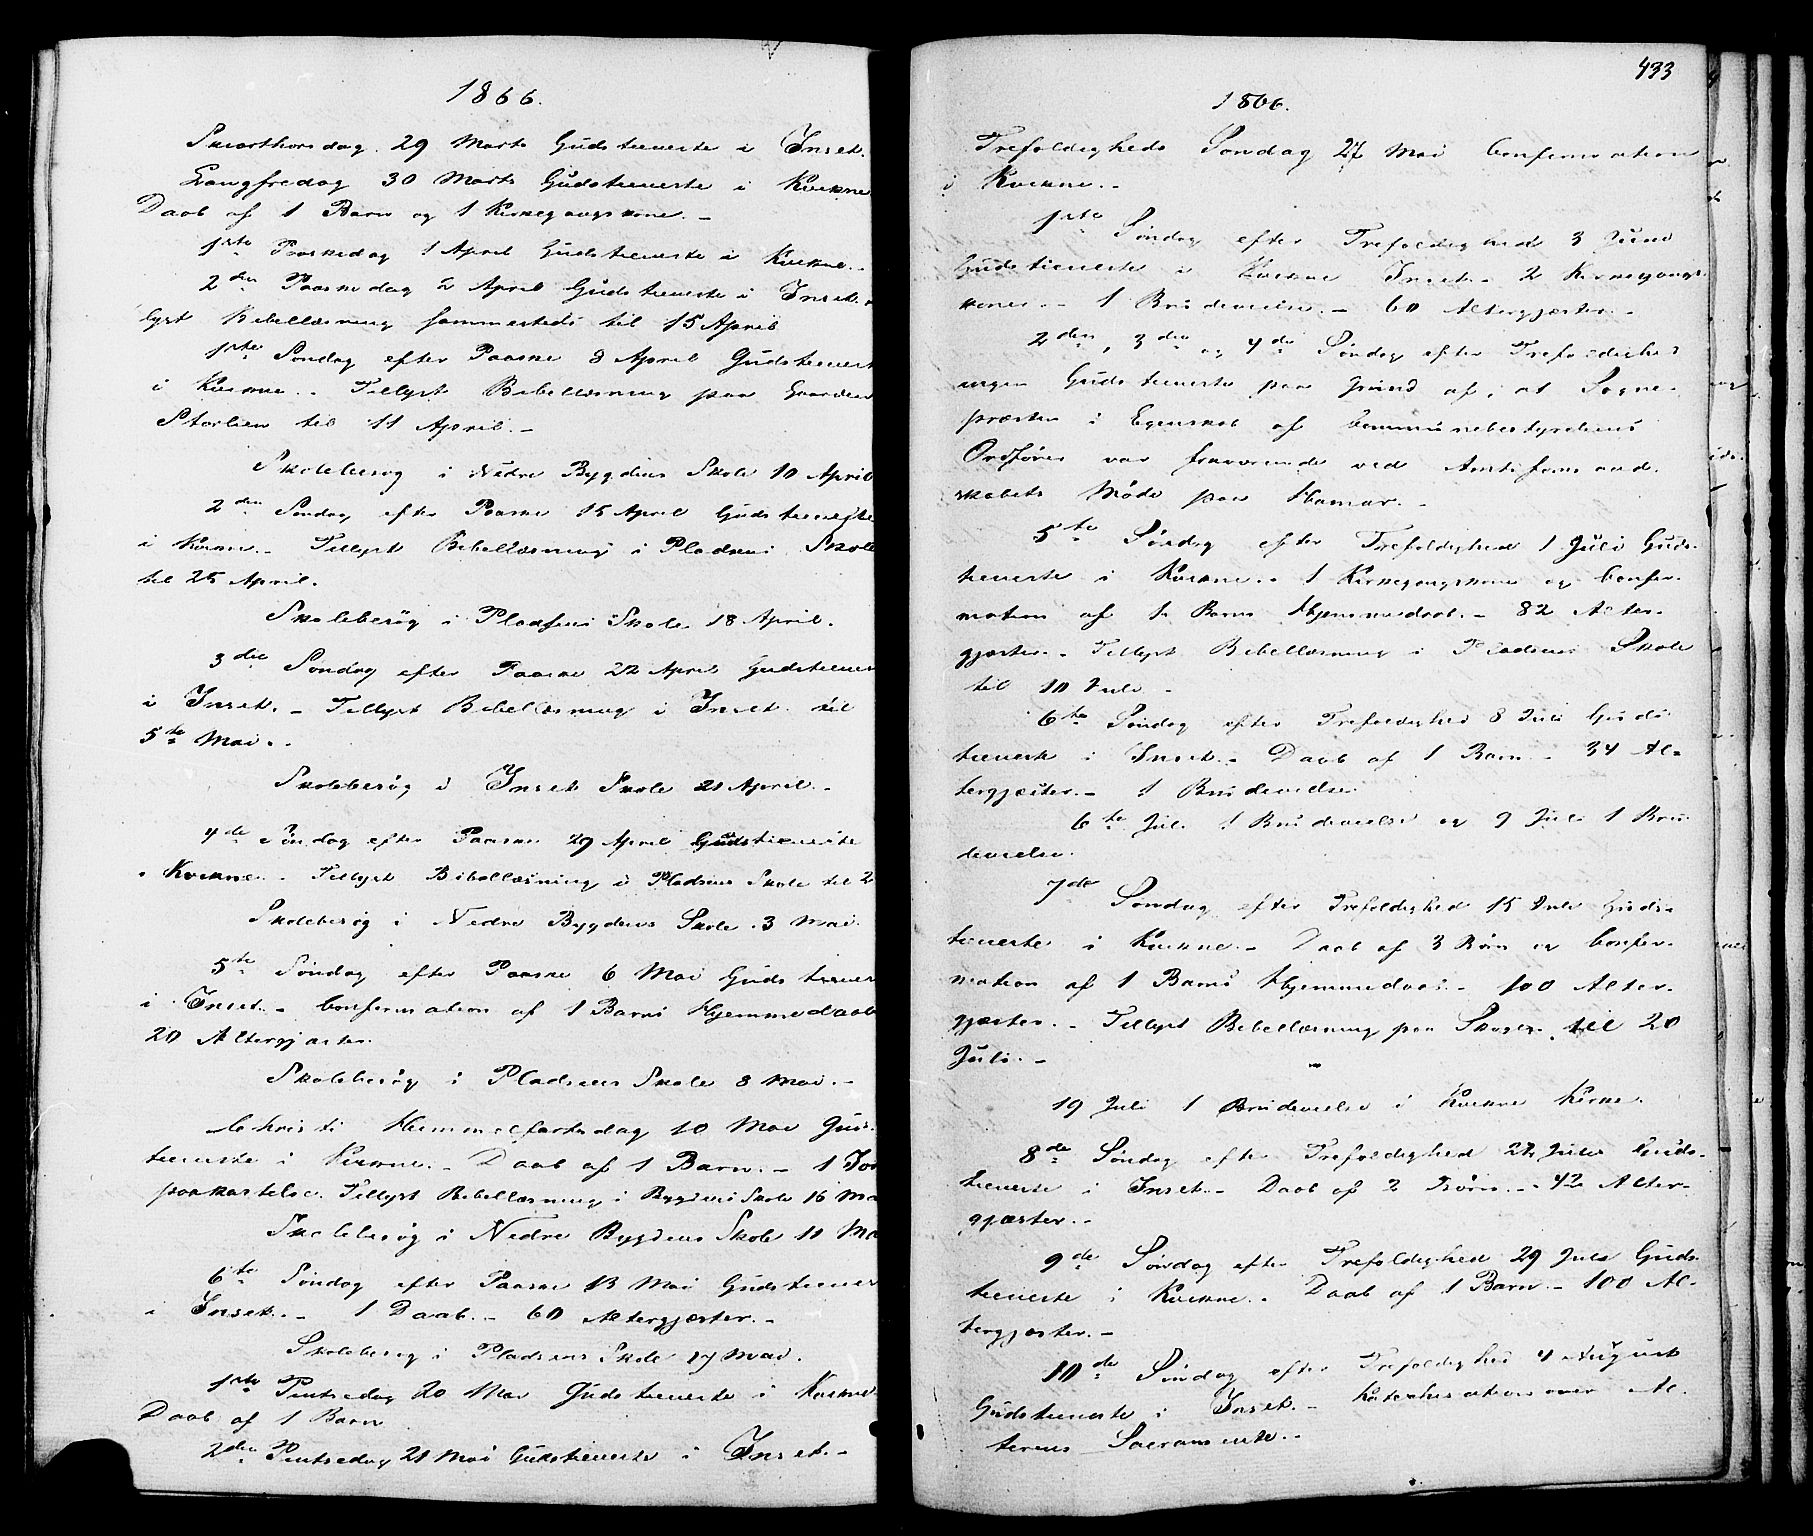 1866.
Skiærthorsdag 29 Marts Gudstieneste i Inset.
Langfredag 30 Marts Gudstieneste i Kvikne
Daab af 1 Barn og 1 Kirkegangskone. –
1ste Paaskedag 1 April Gudstieneste i Kvikne. –
2den Paaskedag 2 April Gudstieneste i Inset. –
lyst Bibellæsning sammesteds til 15 April
1ste Søndag efter Paaske 8 April Gudstienest
i Kvikne. – Tillyst Bibellæsning paa Gaarden
Storlien til 11 April. –
Skolebesøg i Nedre Bygdens Skole 10 April
2den Søndag efter Paaske 15 April Gudstieneste
i Kvikne. – Tillyst Bibellæsning i Pladsens Skole
til 25 April.
Skolebesøg i Pladsens Skole 18 April.
3die Søndag efter Paaske 22 April Gudstienes
i Inset. – Tillyst Bibellæsning i Inset til
5te Mai. –
Skolebesøg i Inset Skole 21 April. –
4de Søndag efter Paaske 29 April Gudstieneste
i Kvikne. – Tillyst Bibellæsning i Pladsens Skole til 2
Skolebesøg i Nedre Bygdens Skole 3 Mai.
5te Søndag efter Paaske 6 Mai Gudstienes
i Inset. – Confirmation af 1 Barns Hjemmedaab
20 Altergjæster.
Skolebesøg i Pladsens Skole 8 Mai. –
Christi Himmelfartsdag 10 Mai Guds-
tieneste i Kvikne. – Daab af 1 Barn. – 1 Jord
paakastelse. Tillyst Bibellæsning i Bygdens Skole 16 Ma
Skolebesøg i Nedre Bygdens Skole 11 Ma
6te Søndag efter Paaske 13 Mai Gudstienes
i Inset. – 1 Daab. – 60 Altergjæster. –
Skolebesøg i Pladsens Skole 17 Mai.
1ste Pintsedag 20 Mai Gudstieneste i Kvikne
Daab af 1 Barn
2den Pintsedag 21 Mai Gudstieneste i Inset. –
433
1866.
Trefoldigheds Søndag 27 Mai Confirmation
i Kvikne. –
1ste Søndag efter Trefoldighed 3 Juni
Gudstieneste i Inset. – 2 Kirkegangs-
koner. – 1 Brudevielse. – 60 Altergjæster. –
2den, 3die og 4de Søndag efter Trefoldighed
ingen Gudstieneste paa Grund af, at Sogne-
præsten i Egenskab af Communebestyrelsens
Ordfører var fraværende ved Amtsformand-
skabets Møde paa Hamar. –
5te Søndag efter Trefoldighed 1 Juli Guds-
tieneste i Kvikne. – 1 Kirkegangskone og Confir-
mation af 1 Barns Hjemmedaab. – 82 Alter-
gjæster. – Tillyst Bibellæsning i Pladsens Skole
til 10 Juli –
6te Søndag efter Trefoldighed 8 Juli Guds-
tieneste i Inset. – Daab af 1 Barn – 34 Al-
tergjæster. – 1 Brudevielse
6te Juli 1 Brudevielse og 9 Juli 1 Bru-
devielse.
7de Søndag efter Trefoldighed 15 Juli Guds-
tieneste i Kvikne. – Daab af 3 Børn og Confir-
mation af 1 Barns Hjemmedaab. – 100 Alter-
gjæster. – Tillyst Bibellæsning paa til 20
Juli. –
19 Juli 1 Brudevielse i Kvikne Kirke.
8de Søndag efter Trefoldighed 22 Juli Guds-
tieneste i Inset. – Daab af 2 Børn. – 42 Alter-
gjæster. –
9de Søndag efter Trefoldighed 29 Juli Guds-
tieneste i Kvikne. – Daab af 1 Barn – 100 Al-
tergjæster. –
10de Søndag efter Trefoldighed 4 August
Gudstieneste i Inset. – Katechisation over Al-
terens Sacramente. –